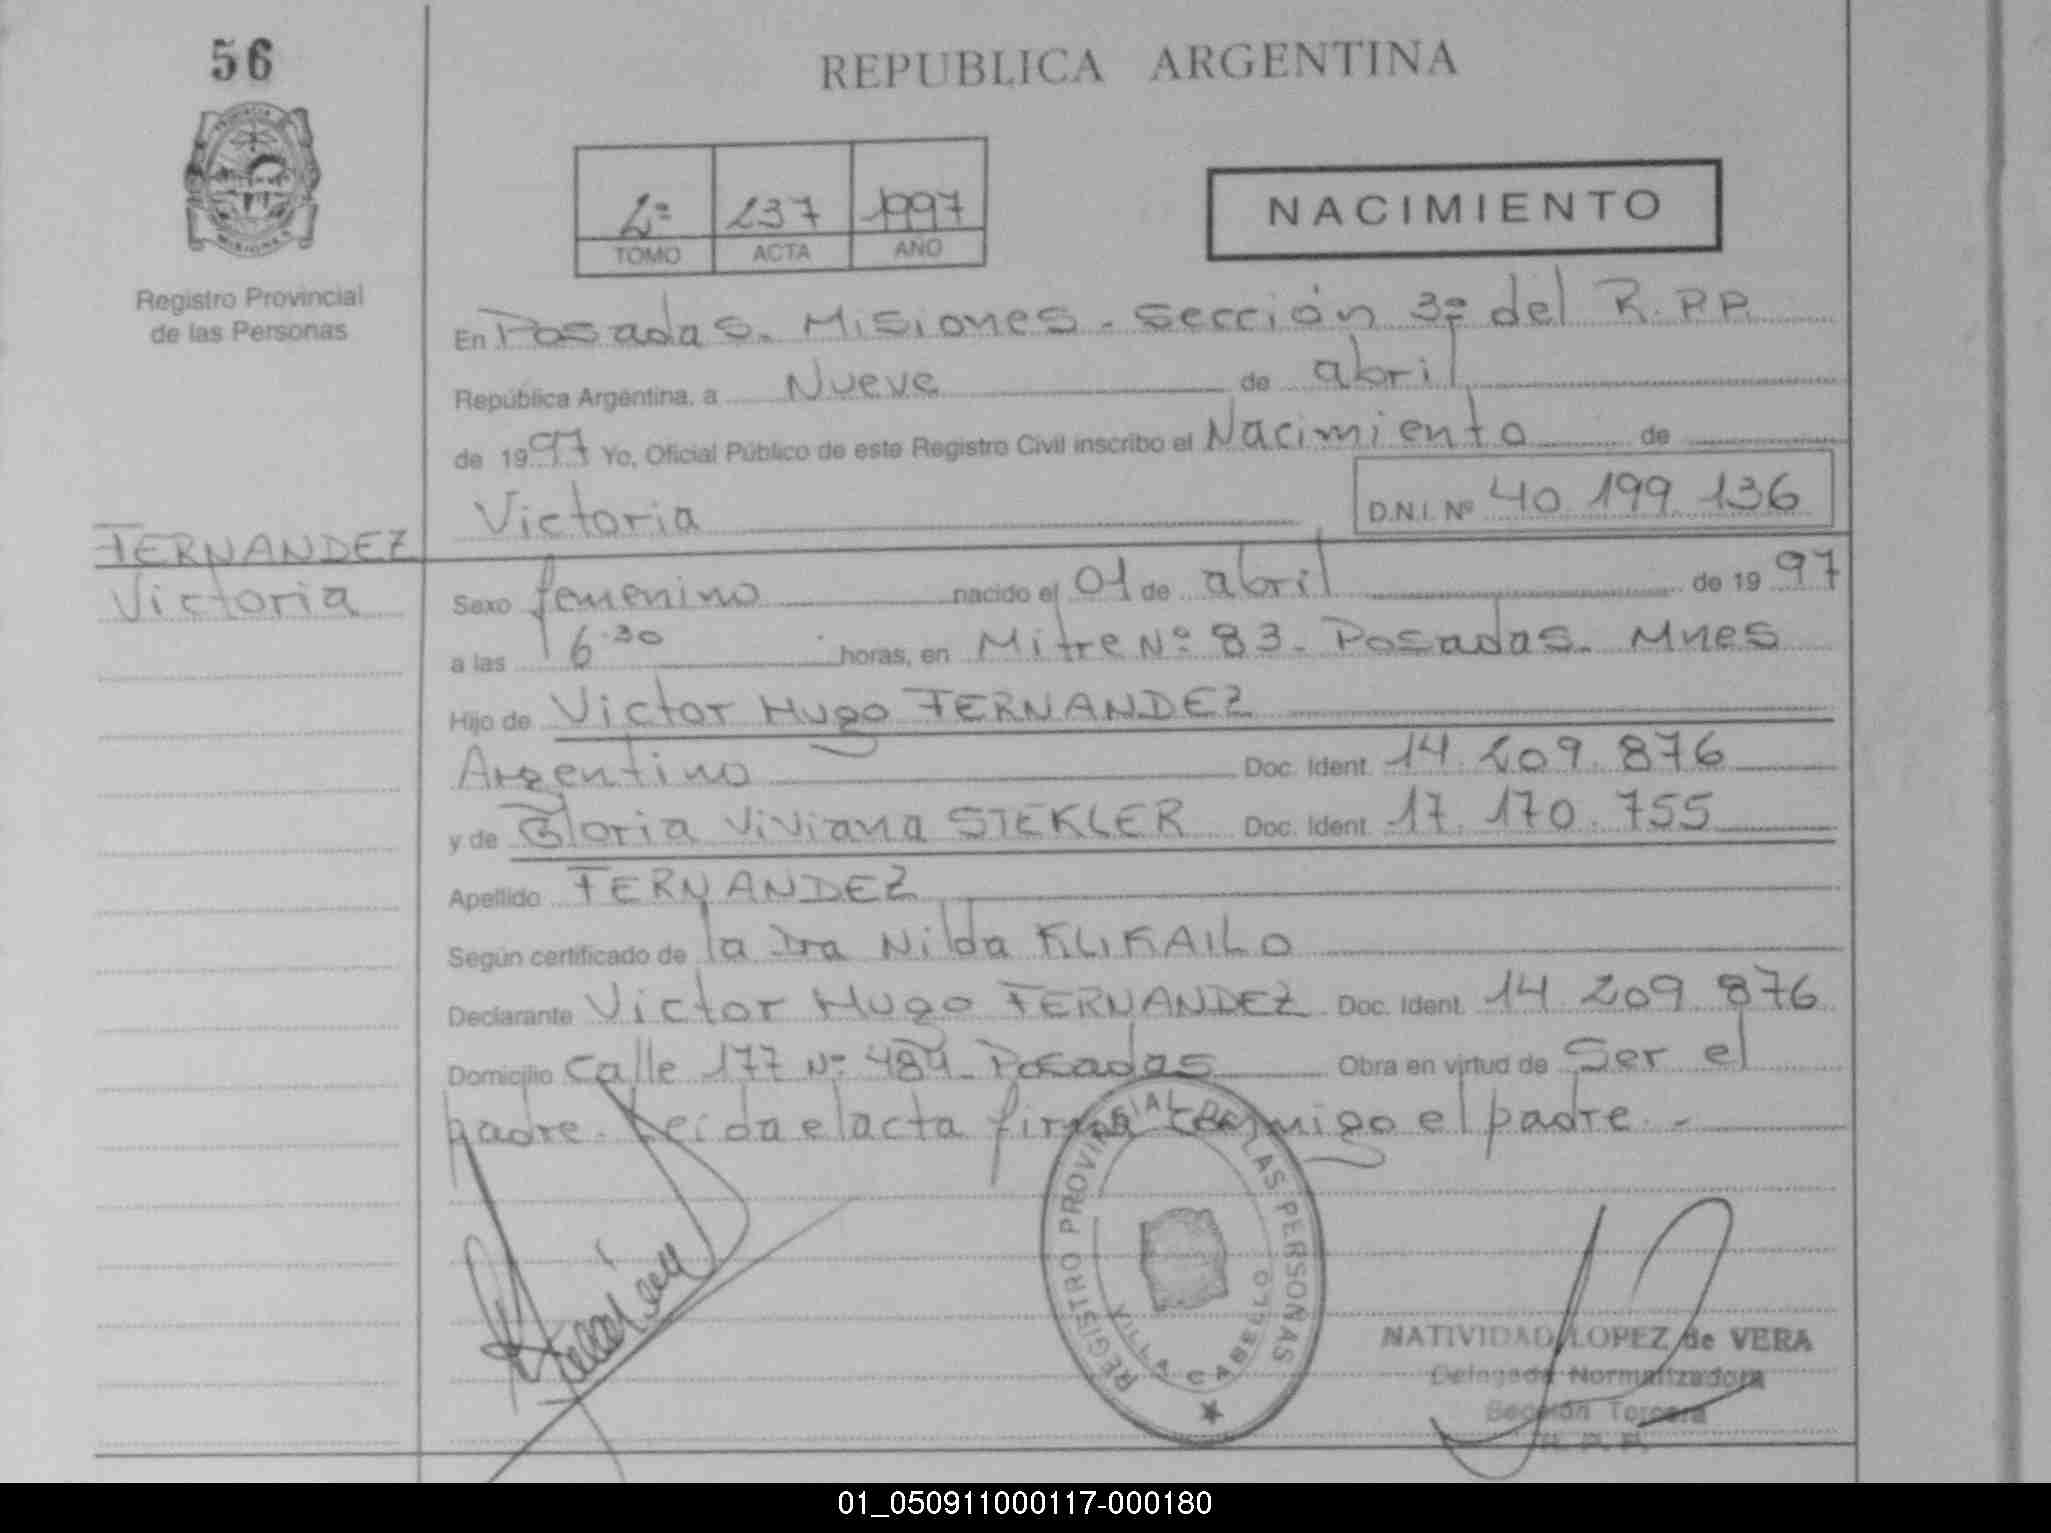 56
REPUBLICA ARGENTINA
PROVINCIA
MISIONES
Registro Provincial
de las Personas
2º 237 1997
TOMO ACTA AÑO
NACIMIENTO
En Posadas. Misiones. sección 3º del R.P.P.
República Argentina, a Nueve de abril
de 1997 Yo, Oficial Público de este Registro Civil inscribo el Nacimiento de
Victoria D.N.I. Nº 40.199.136
FERNANDEZ
Victoria
Sexo femenino nacido el 01 de abril de 1997
a las 6.30 horas, en Mitre Nº 83. Posadas. Mnes
Hijo de Victor Hugo FERNANDEZ
Argentino Doc. Ident. 14.209.876
y de Gloria Viviana STEKLER Doc. Ident. 17.170.755
Apellido FERNANDEZ
Según certificado de la Dra Nilda KLIKAILO
Declarante Victor Hugo FERNANDEZ Doc. Ident. 14.209.876
Domicilio Calle 177 Nº 484. Posadas Obra en virtud de Ser el
padre. Leida el acta firma conmigo el padre.-
REGISTRO PROVINCIAL DE LAS PERSONAS
VILLA CABELLO
NATIVIDAD LOPEZ de VERA
Delegada Normalizadora
Sección Tercera
R. P. P.
01_050911000117-000180